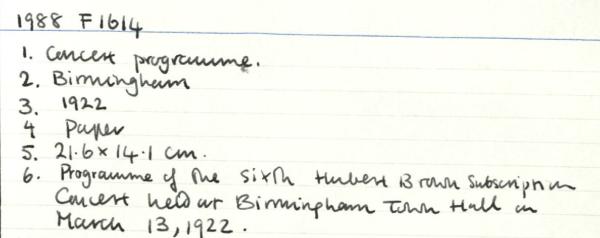 1988 F1614
1. Concert programme.
2. Birmingham
3. 1922
4 Paper
5. 21.6 x 14.1 cm.
6. Programme of the sixth Hubert Brown Subscription
Concert held at Birmingham Town Hall on
March 13, 1922.